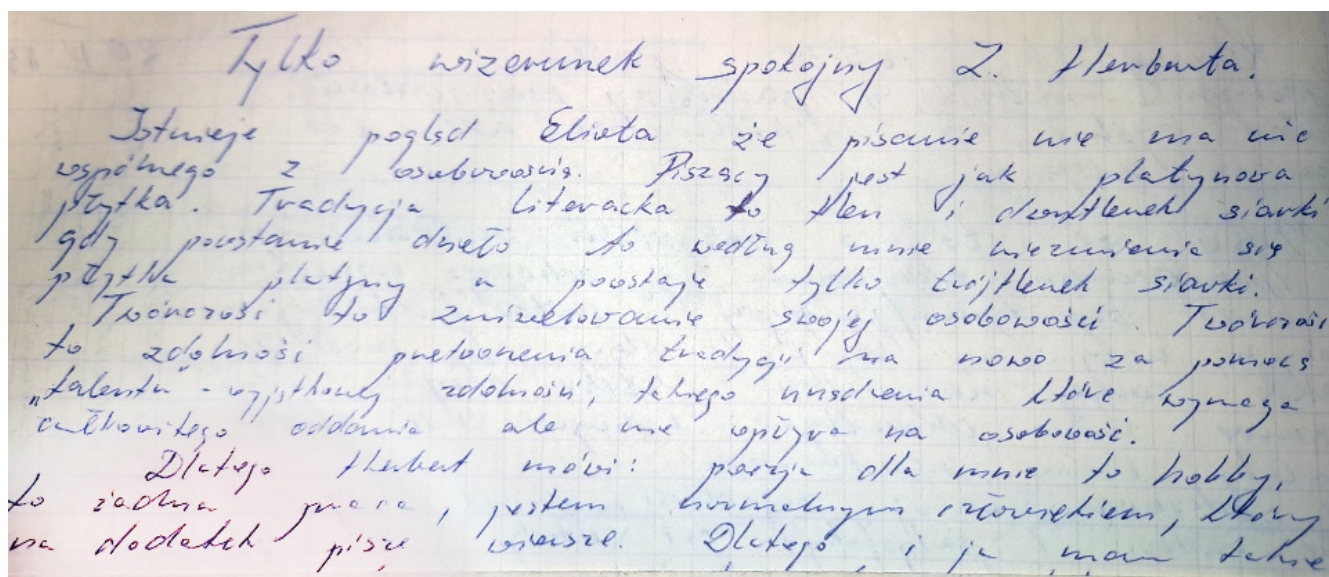 Tylko wizerunek spokojny Z. Herberta.
Istnieje pogląd Eliota że pisanie nie ma nic
wspólnego z osobowością. Piszący jest jak platynowa
płytka. Tradycja literacka to tlen i dwutlenek siarki
gdy powstanie dzieło to według mnie niezmienia się
płytka platyny a powstaje tylko trójtlenek siarki.
Twórczość to zniwelowanie swojej osobowości. Twórczość
to zdolność przetworzenia tradycji na nowo za pomocą
„talentu” - wyjątkowej zdolności, takiego urządzenia które wymaga
całkowitego oddania ale nie wpływa na osobowość.
Dlatego Herbert mówi: poezja dla mnie to hobby,
to żadna praca, jestem normalnym człowiekiem, który
na dodatek pisze wiersze. Dlatego i ja mam takie